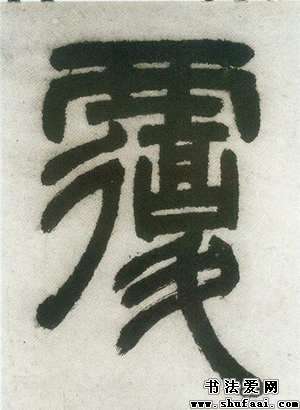 覆
书法爱网
www.shufaai.com